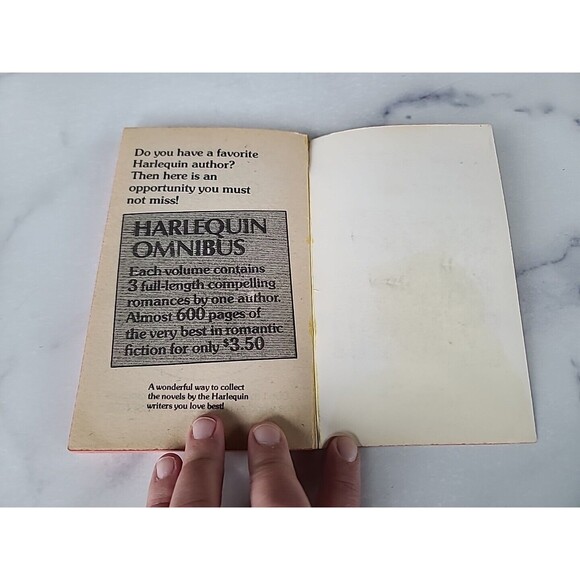 Do you have a favorite
Harlequin author?
Then here is an
opportunity you must
not miss!
HARLEQUIN
OMNIBUS
Each volume contains
3 full-length compelling
romances by one author.
Almost 600 pages of
the very best in romantic
fiction for only $3.50
A wonderful way to collect
the novels by the Harlequin
writers you love best!